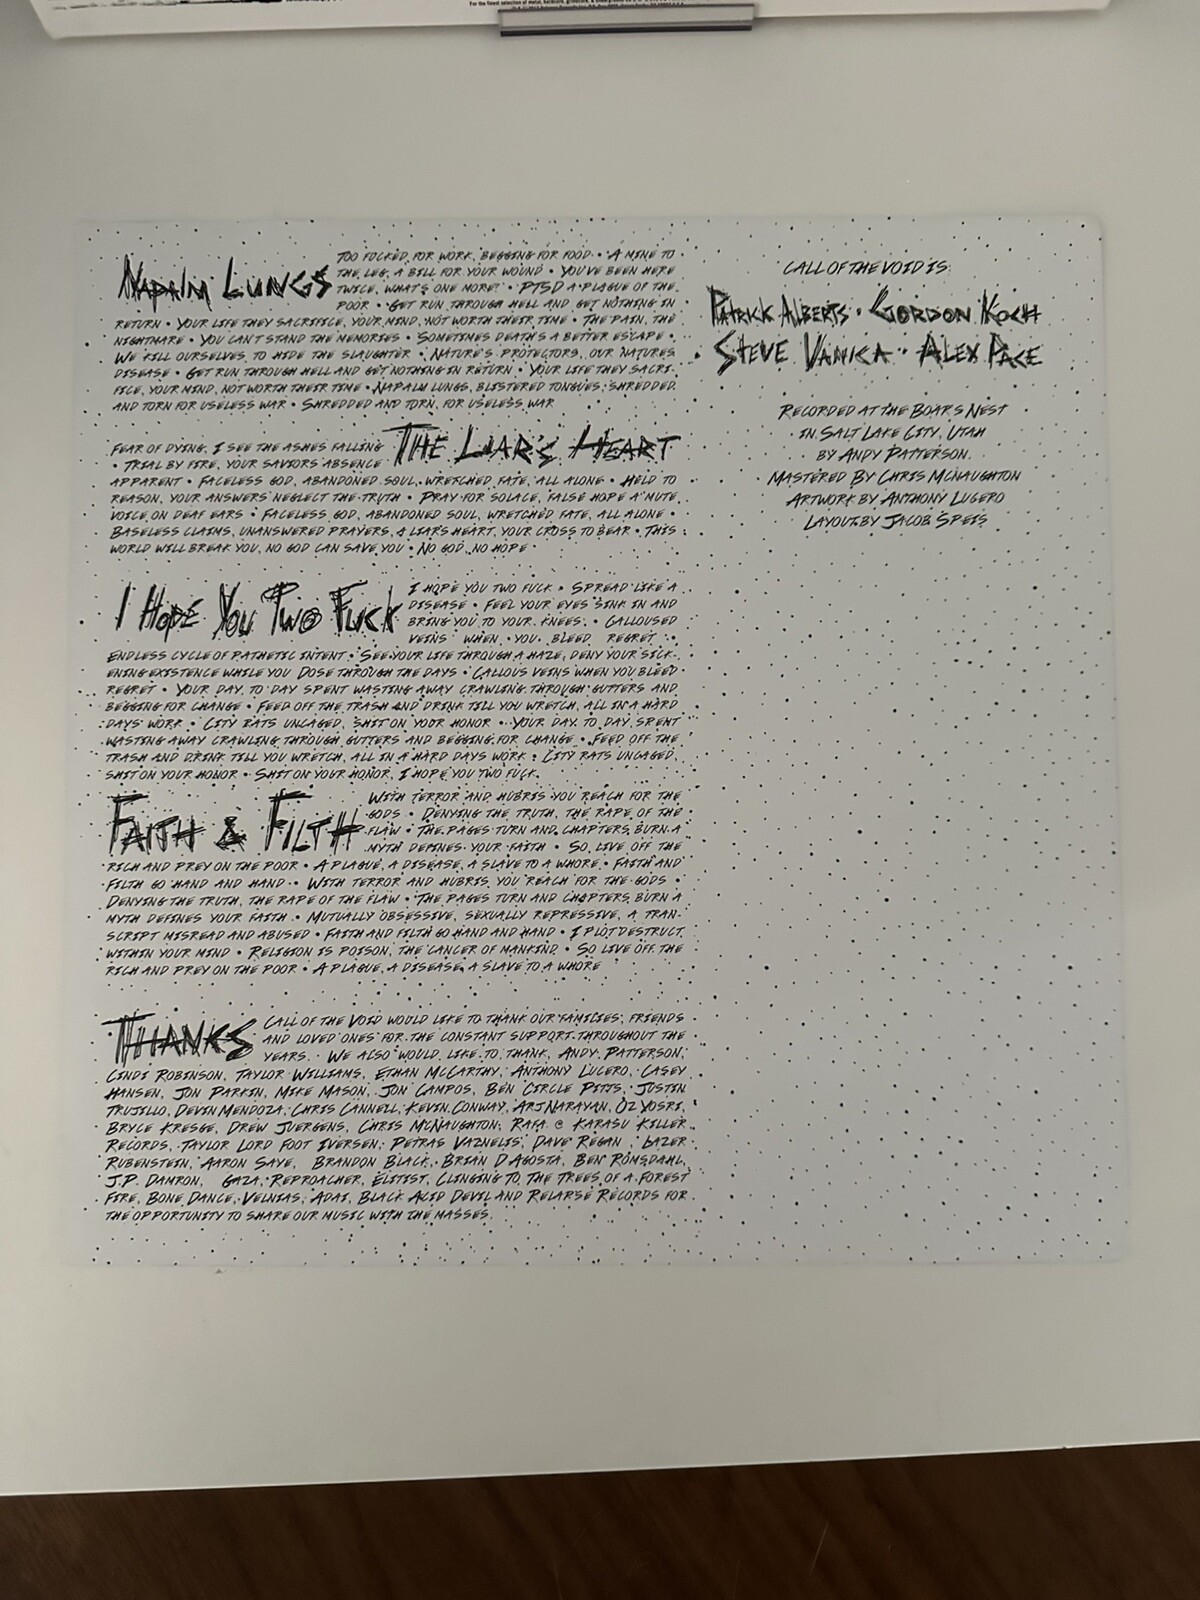 For the finest selection of metal, hardcore, grindcore, & underground
NAPALM LUNGS
TOO FUCKED FOR WORK, BEGGING FOR FOOD • A MINE TO
THE LEG, A BILL FOR YOUR WOUND • YOU'VE BEEN HERE
TWICE, WHAT'S ONE MORE? • PTSD A PLAGUE OF THE
POOR • GET RUN THROUGH HELL AND GET NOTHING IN
RETURN • YOUR LIFE THEY SACRIFICE, YOUR MIND, NOT WORTH THEIR TIME • THE PAIN, THE
NIGHTMARE • YOU CAN'T STAND THE MEMORIES • SOMETIMES DEATH'S A BETTER ESCAPE •
WE KILL OURSELVES, TO HIDE THE SLAUGHTER • NATURE'S PROTECTORS, OUR NATURES
DISEASE • GET RUN THROUGH HELL AND GET NOTHING IN RETURN • YOUR LIFE THEY SACRI-
FICE, YOUR MIND, NOT WORTH THEIR TIME • NAPALM LUNGS, BLISTERED TONGUES, SHREDDED
AND TORN FOR USELESS WAR • SHREDDED AND TORN, FOR USELESS WAR
THE LIAR'S HEART
FEAR OF DYING, I SEE THE ASHES FALLING
• TRIAL BY FIRE, YOUR SAVIORS ABSENCE
APPARENT • FACELESS GOD, ABANDONED SOUL, WRETCHED FATE, ALL ALONE • HELD TO
REASON, YOUR ANSWERS NEGLECT THE TRUTH • PRAY FOR SOLACE, FALSE HOPE A MUTE
VOICE ON DEAF EARS • FACELESS GOD, ABANDONED SOUL, WRETCHED FATE, ALL ALONE •
BASELESS CLAIMS, UNANSWERED PRAYERS, A LIAR'S HEART, YOUR CROSS TO BEAR • THIS
WORLD WILL BREAK YOU, NO GOD CAN SAVE YOU • NO GOD, NO HOPE
I HOPE YOU TWO FUCK
I HOPE YOU TWO FUCK • SPREAD LIKE A
DISEASE • FEEL YOUR EYES SINK IN AND
BRING YOU TO YOUR KNEES • CALLOUSED
VEINS WHEN YOU BLEED REGRET
ENDLESS CYCLE OF PATHETIC INTENT • SEE YOUR LIFE THROUGH A HAZE, DENY YOUR SICK-
ENING EXISTENCE WHILE YOU DOSE THROUGH THE DAYS • CALLOUS VEINS WHEN YOU BLEED
REGRET • YOUR DAY TO DAY SPENT WASTING AWAY CRAWLING THROUGH GUTTERS AND
BEGGING FOR CHANGE • FEED OFF THE TRASH AND DRINK TILL YOU WRETCH, ALL IN A HARD
DAYS WORK • CITY RATS UNCAGED, SHIT ON YOUR HONOR • YOUR DAY TO DAY SPENT
WASTING AWAY CRAWLING THROUGH GUTTERS AND BEGGING FOR CHANGE • FEED OFF THE
TRASH AND DRINK TILL YOU WRETCH, ALL IN A HARD DAYS WORK • CITY RATS UNCAGED,
SHIT ON YOUR HONOR • SHIT ON YOUR HONOR, I HOPE YOU TWO FUCK.
FAITH & FILTH
WITH TERROR AND HUBRIS YOU REACH FOR THE
GODS • DENYING THE TRUTH, THE RAPE OF THE
FLAW • THE PAGES TURN AND CHAPTERS BURN A
MYTH DEFINES YOUR FAITH • SO LIVE OFF THE
RICH AND PREY ON THE POOR • A PLAGUE, A DISEASE, A SLAVE TO A WHORE • FAITH AND
FILTH GO HAND AND HAND • WITH TERROR AND HUBRIS YOU REACH FOR THE GODS •
DENYING THE TRUTH, THE RAPE OF THE FLAW • THE PAGES TURN AND CHAPTERS BURN A
MYTH DEFINES YOUR FAITH • MUTUALLY OBSESSIVE, SEXUALLY REPRESSIVE, A TRAN-
SCRIPT MISREAD AND ABUSED • FAITH AND FILTH GO HAND AND HAND • I PLOT DESTRUCT
WITHIN YOUR MIND • RELIGION IS POISON, THE CANCER OF MANKIND • SO LIVE OFF THE
RICH AND PREY ON THE POOR • A PLAGUE, A DISEASE, A SLAVE TO A WHORE
THANKS
CALL OF THE VOID WOULD LIKE TO THANK OUR FAMILIES, FRIENDS
AND LOVED ONES FOR THE CONSTANT SUPPORT THROUGHOUT THE
YEARS. WE ALSO WOULD LIKE TO THANK, ANDY PATTERSON,
CINDI ROBINSON, TAYLOR WILLIAMS, ETHAN MCCARTHY, ANTHONY LUCERO, CASEY
HANSEN, JON PARKIN, MIKE MASON, JON CAMPOS, BEN CIRCLE PITTS, JUSTIN
TRUJILLO, DEVIN MENDOZA, CHRIS CANNELL, KEVIN CONWAY, ARJ NARAYAN, OZ YOSRI,
BRYCE KRESGE, DREW JUERGENS, CHRIS MCNAUGHTON, RAFA @ KARASU KILLER
RECORDS, TAYLOR LORD FOOT IVERSEN, PETRAS VAZNELIS, DAVE REGAN, LAZER
RUBENSTEIN, AARON SAYE, BRANDON BLACK, BRIAN D'AGOSTA, BEN ROMSDAHL,
J.P. DAMRON, GAZA, REPROACHER, ELITIST, CLINGING TO THE TREES OF A FOREST
FIRE, BONE DANCE, VELNIAS, ADAI, BLACK ACID DEVIL AND RELAPSE RECORDS FOR
THE OPPORTUNITY TO SHARE OUR MUSIC WITH THE MASSES.
CALL OF THE VOID IS:
PATRICK ALBERTS • GORDON KOCH
STEVE VANICA • ALEX PACE
RECORDED AT THE BOAR'S NEST
IN SALT LAKE CITY, UTAH
BY ANDY PATTERSON.
MASTERED BY CHRIS MCNAUGHTON
ARTWORK BY ANTHONY LUCERO
LAYOUT BY JACOB SPEIS